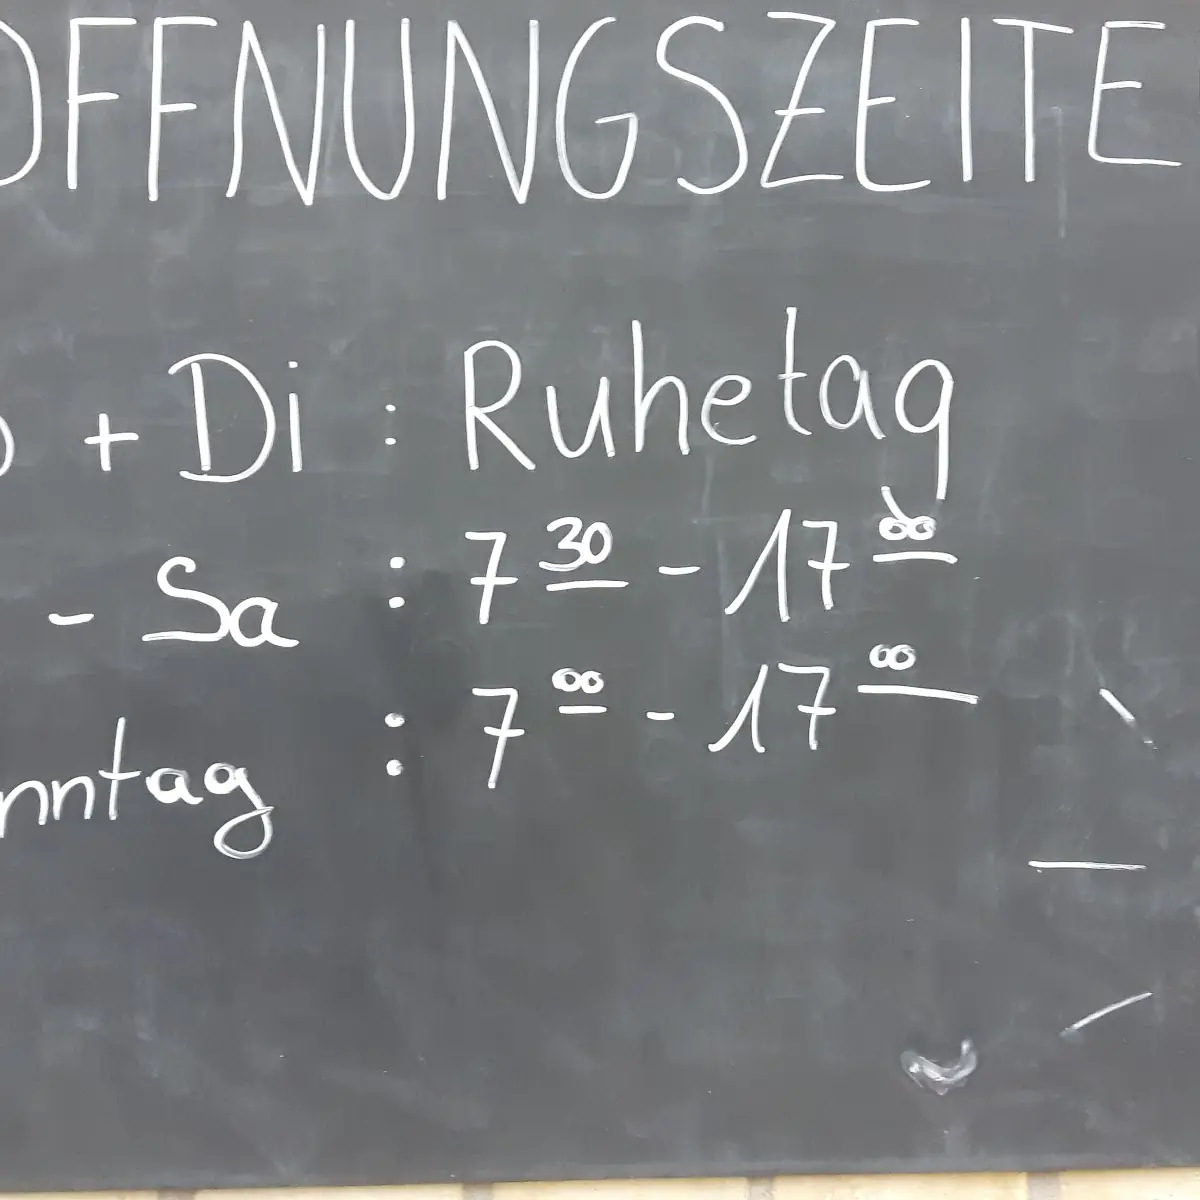 OFFNUNGSZEITE
o + Di : Ruhetag
- Sa : 7 30 - 17 00
nntag : 7 00 - 17 00